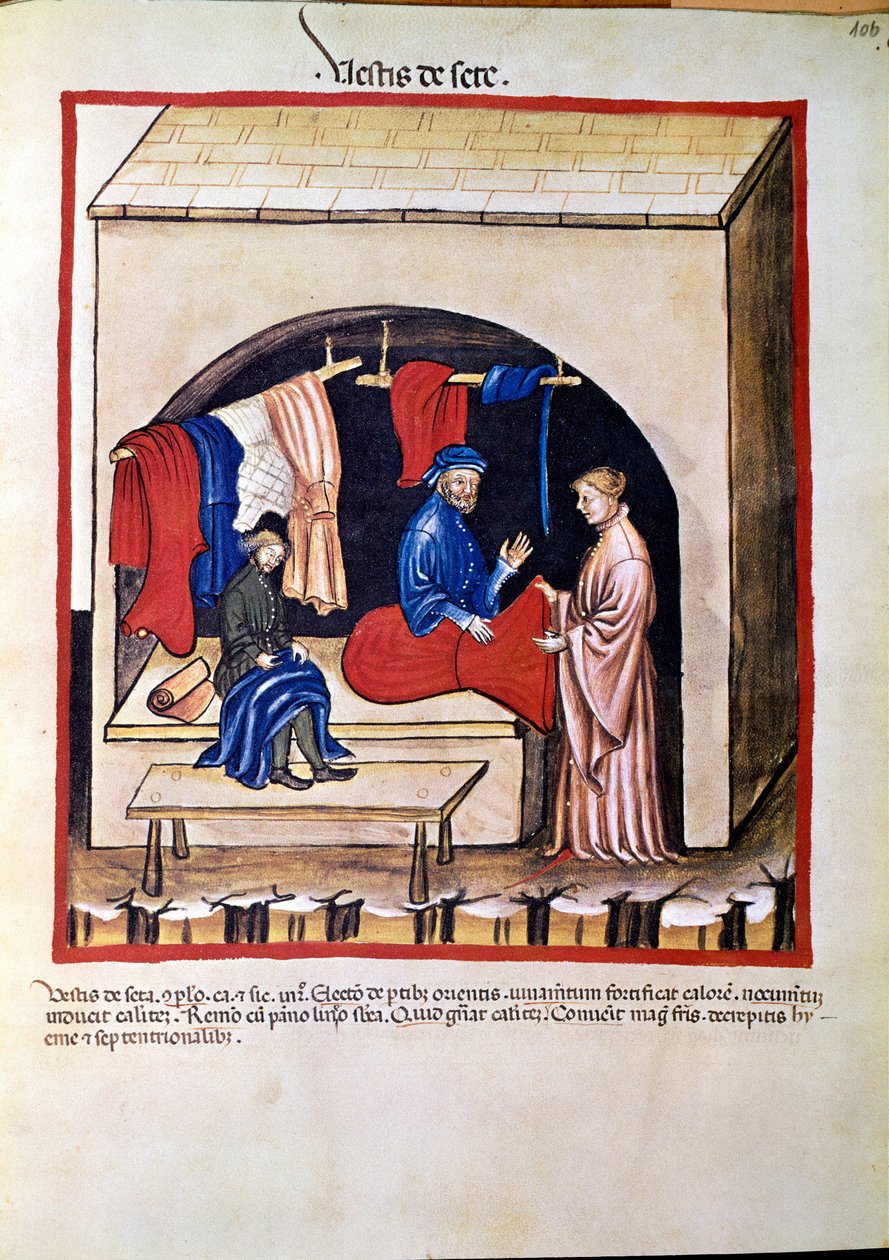 106
Vestis de sete.
Vestis de seta. ꝯplo̅. ca. ⁊ sic. in 2º. Electo̅ de ptibꝫ orientis. iuuam̅tum fortificat calore̅. nocum̅tuꝫ
inducit caliteꝫ. Remo̅ cu̅ pa̅no lino̅ Quid gn̅at caliteꝫ. Conueit̅ mag̅ fris̅. decrepitis hy-
eme ⁊ septentrionalibꝫ.